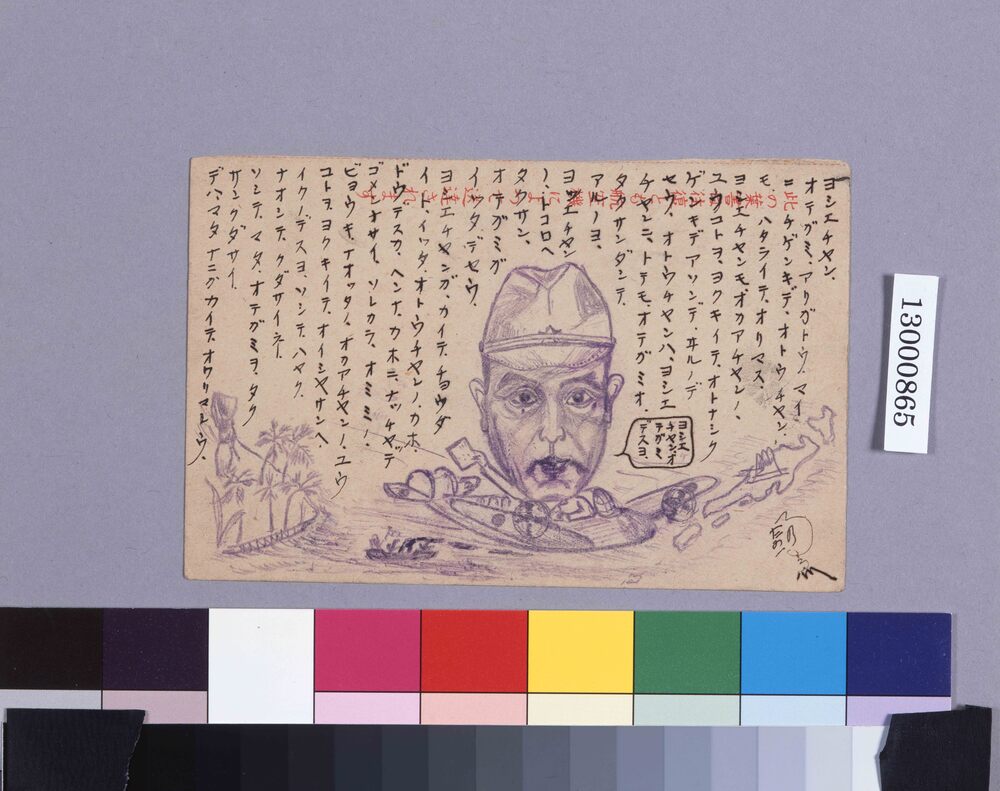 ヨシエチャン、
オテガミ、アリガトウ、マイ
ニチゲンキデ、オトウチャン、
モ、ハタライテ、オリマス、
ヨシエチャンモ、オカアチャンノ、
ユウコトヲ、ヨクキイテ、オトナシク
ゲンキデアソンデ、ヰルノデ
セウ、オトウチャンハ、ヨシエ
チャンニ、トテモ、オテガミオ、
タクサンダシテ、
アルノヨ、
ヨシエチャン
ノ、トコロヘ
タクサン、
オテガミガ
イッタ、デセウ、
ヨシエチャンガ、カイテ、チョウダ
イト、イッタ、オトウチャンノ、カホ、
ドウデスカ、ヘンナ、カホニ、ナッチャッテ
ゴメンナサイ、ソレカラ、オミミノ、
ビョウキ、ナオッタノ、オカアチャンノ、ユウ
コトヲ、ヨクキイテ、オイシャサンヘ
イクノデスヨ、ソシテ、ハヤク、
ナオシテ、クダサイネー
ソシテ、マタ、オテガミヲ、タク
サンクダサイ、
デハ、マタナニカカイテ、オクリマショウ、
ヨシエ
チャン、オ
テガミ
デスヨ、
此の葉書は往復とも航空機によりせむ送達されます
13000865